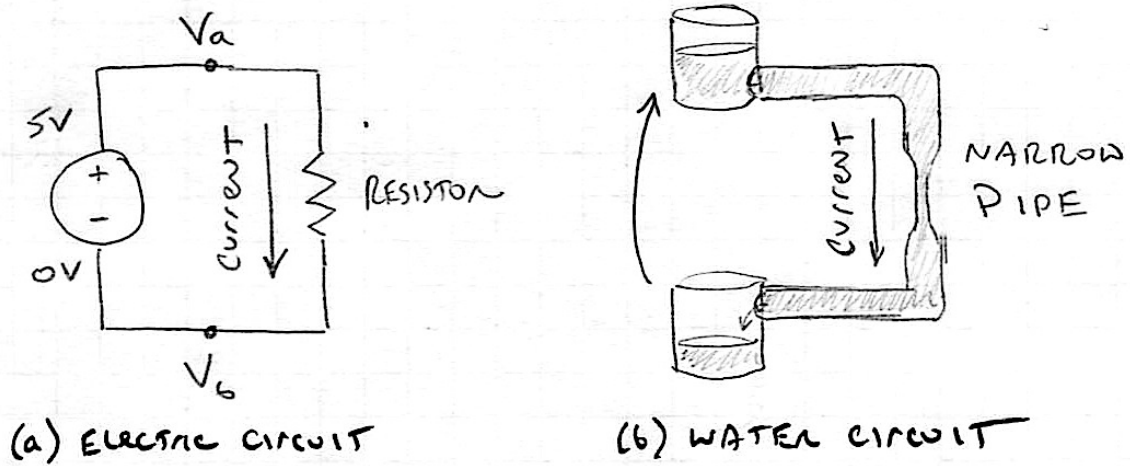 Va
5V
+
-
0V
Current
RESISTOR
Vb
(a) ELECTRIC CIRCUIT
Current
NARROW
PIPE
(b) WATER CIRCUIT